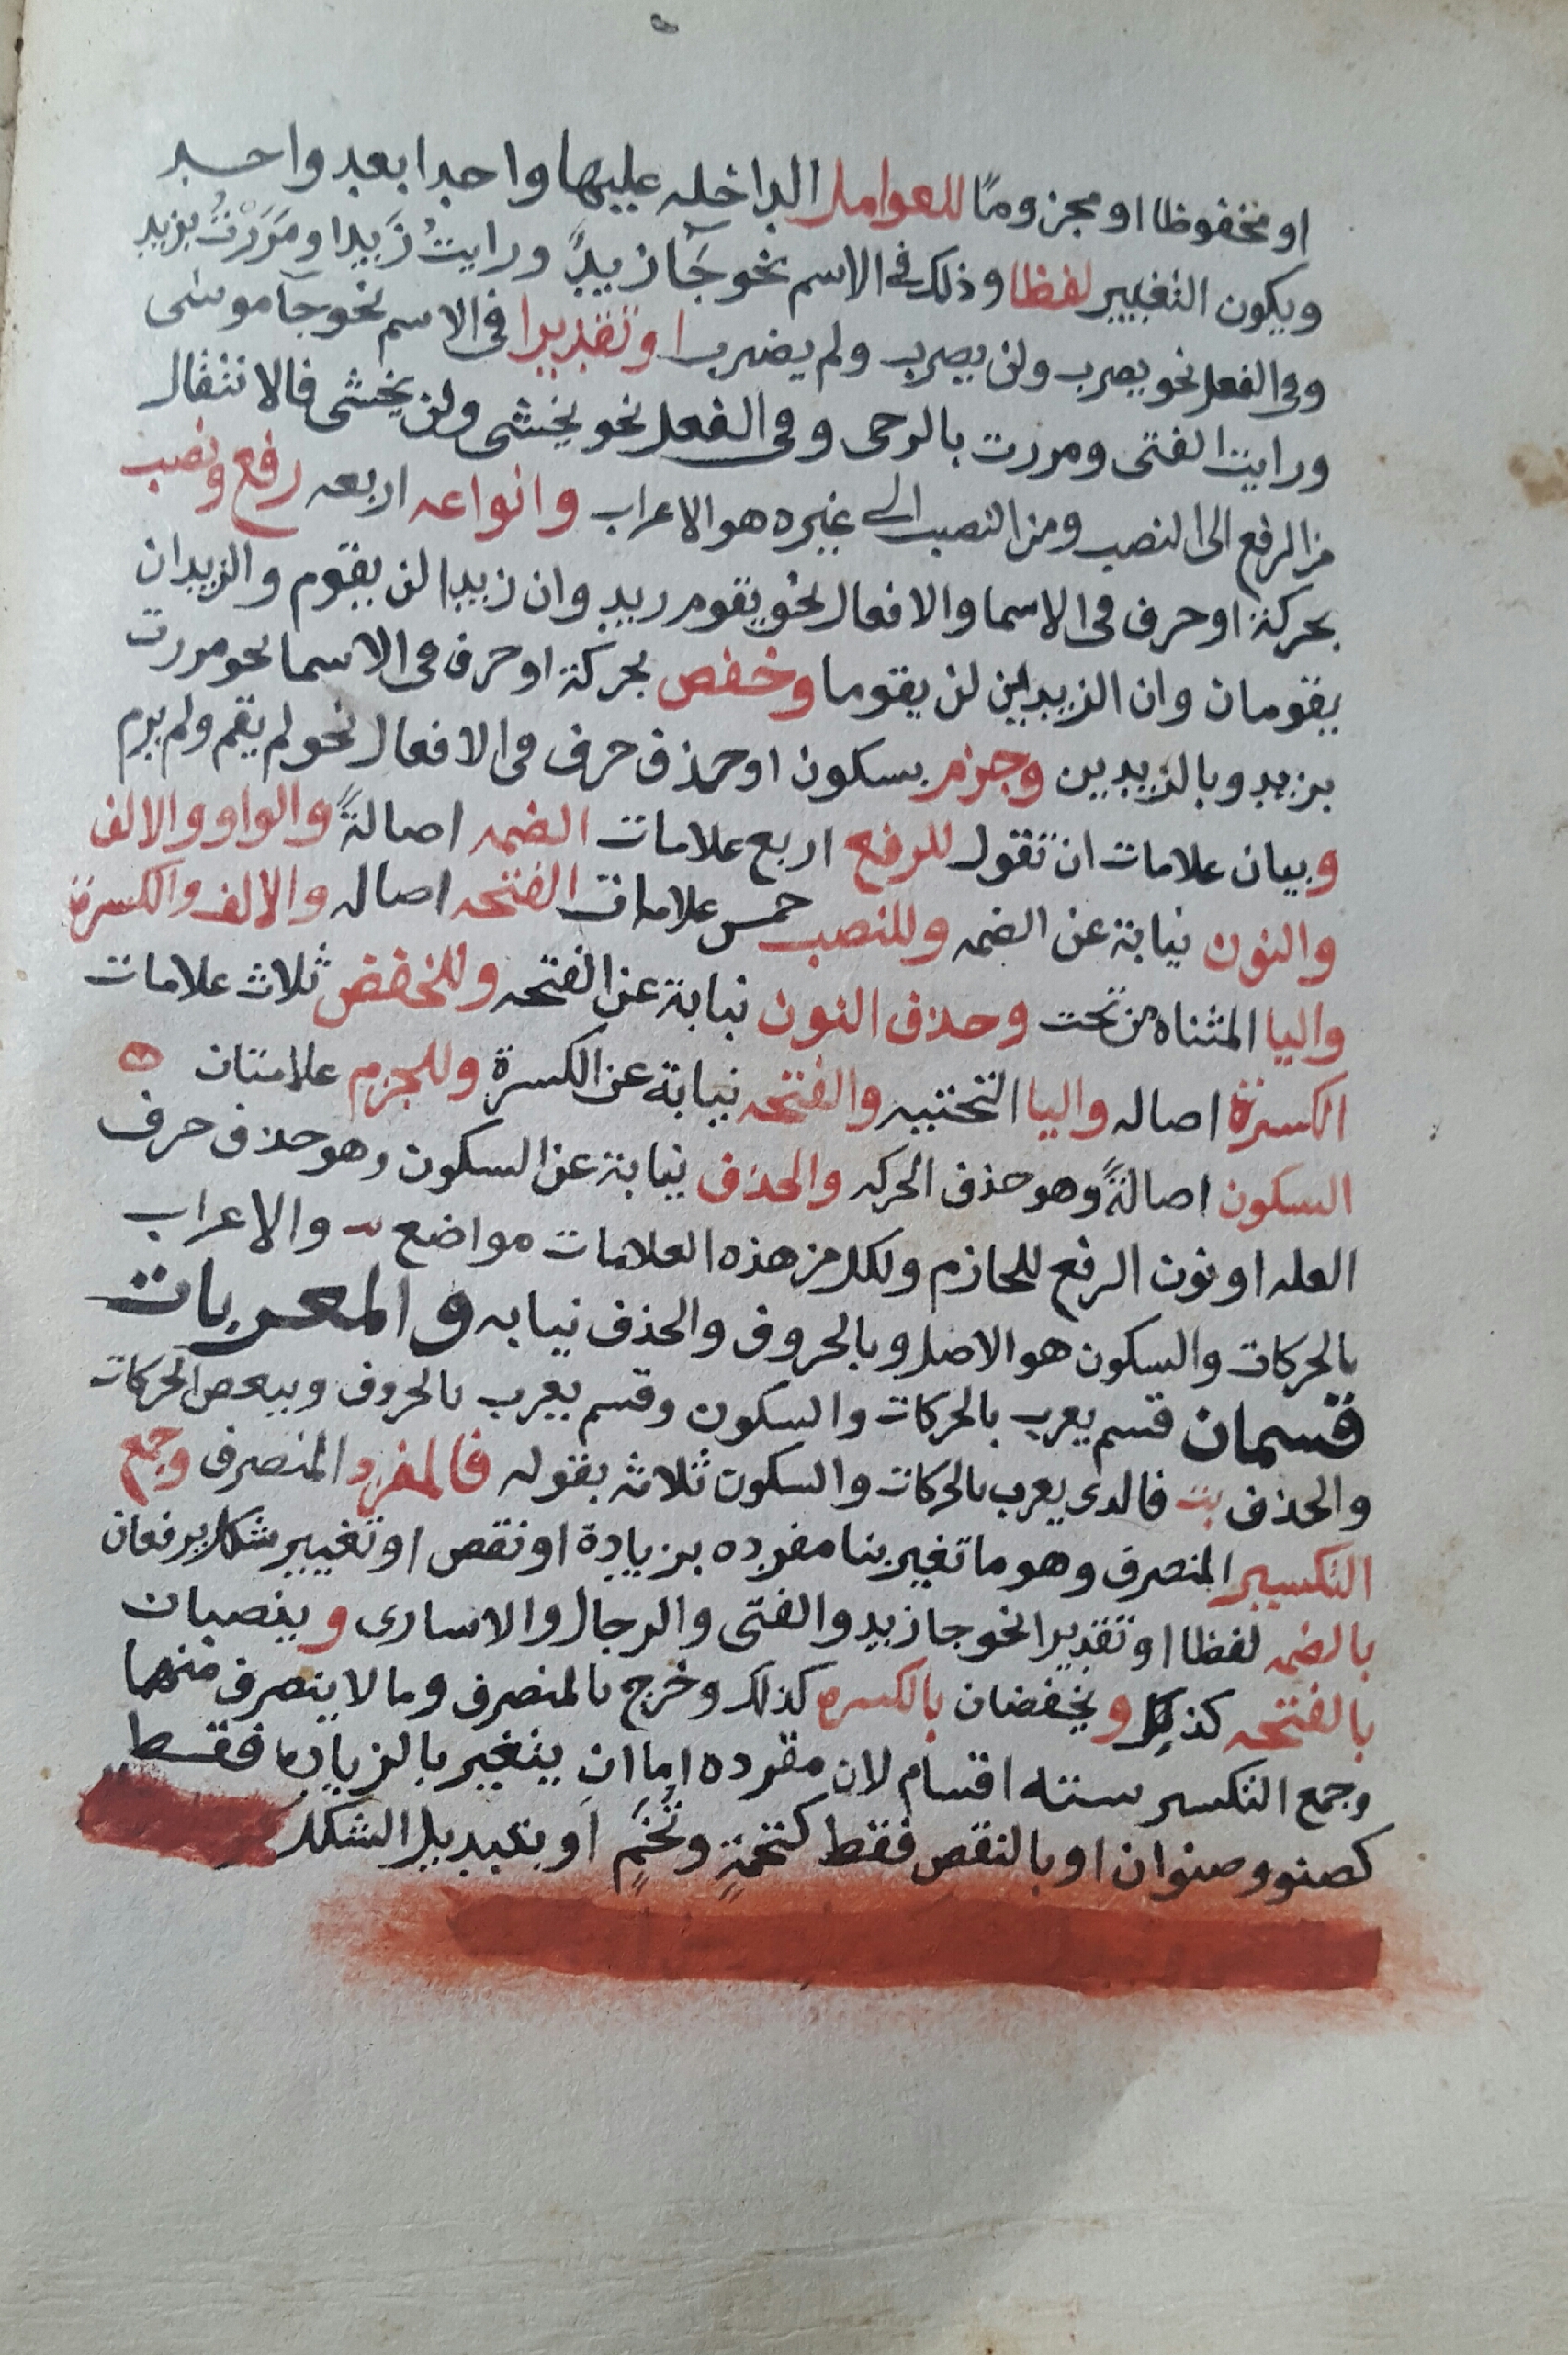 او مخفوظا او مجزومًا للعوامل الداخله عليها واحدا بعد واحد
ويكون التغيير لفظا وذلك في الاسم نحو جَآ زيدٌ ورايتُ زَيدا ومَرَرْتُ بزيد
وفى الفعل نحو يصرب ولن يصرب ولم يضرب او تقديرا فى الاسم نحو جآ موسى
ورايت الفتى ومررت بالرحى وفى الفعل نحو يخشى ولن يخشى فالانتقال
من الرفع الى النصب ومن النصب الى غيره هو الاعراب وانواعه اربعه رفع ونصب
بحركة او حرف فى الاسما والافعال نحو يقوم زيد وان زيدا لن يقوم والزيدان
يقومان وان الزيدين لن يقوما وخفص بحركة او حرف فى الاسما نحو مررت
بزيد وبالزيدين وجزم بسكون او حذف حرف فى الافعال نحو لم يقم ولم يرم
وبيان علامات ان تقول للرفع اربع علامات الضمه اصالةً والواو والالف
والنون نيابة عن الضمه وللنصب خمس علامات الفتحه اصاله والالف والكسرة
واليا المثناه من تحت وحذف النون نيابة عن الفتحه وللخفض ثلاث علامات
الكسرة اصاله واليا التحتيه والفتحه نيابة عن الكسرة وللجزم علامتان
السكون اصالةً وهو حذف الحركه والحذف نيابة عن السكون وهو حذف حرف
العله او نون الرفع للجازم ولكل من هذه العلامات مواضع والاعراب
بالحركات والسكون هو الاصل وبالحروف والحذف نيابه والمعربات
قسمان قسم يعرب بالحركات والسكون وقسم يعرب بالحروف وببعض الحركات
والحذف فالدى يعرب بالحركات والسكون ثلاثه بقوله فالمفرد المنصرف وجمع
التكسير المنصرف وهو ما تغير بنا مفرده بزيادة او نقص او تغيير شكل يرفعان
بالضمه لفظا او تقديرا نحو جا زيد والفتى والرجال والاسارى وينصبان
بالفتحه كذلك ويخفضان بالكسره كذلك وخرج بالمنصرف وما لا ينصرف منهما
وجمع التكسير ستته اقسام لان مفرده اما ان يتغير بالزيادة فقط
كصنو وصنوان او بالنقص فقط كتخمةٍ وتُخَمٍ او بتبديل الشكل